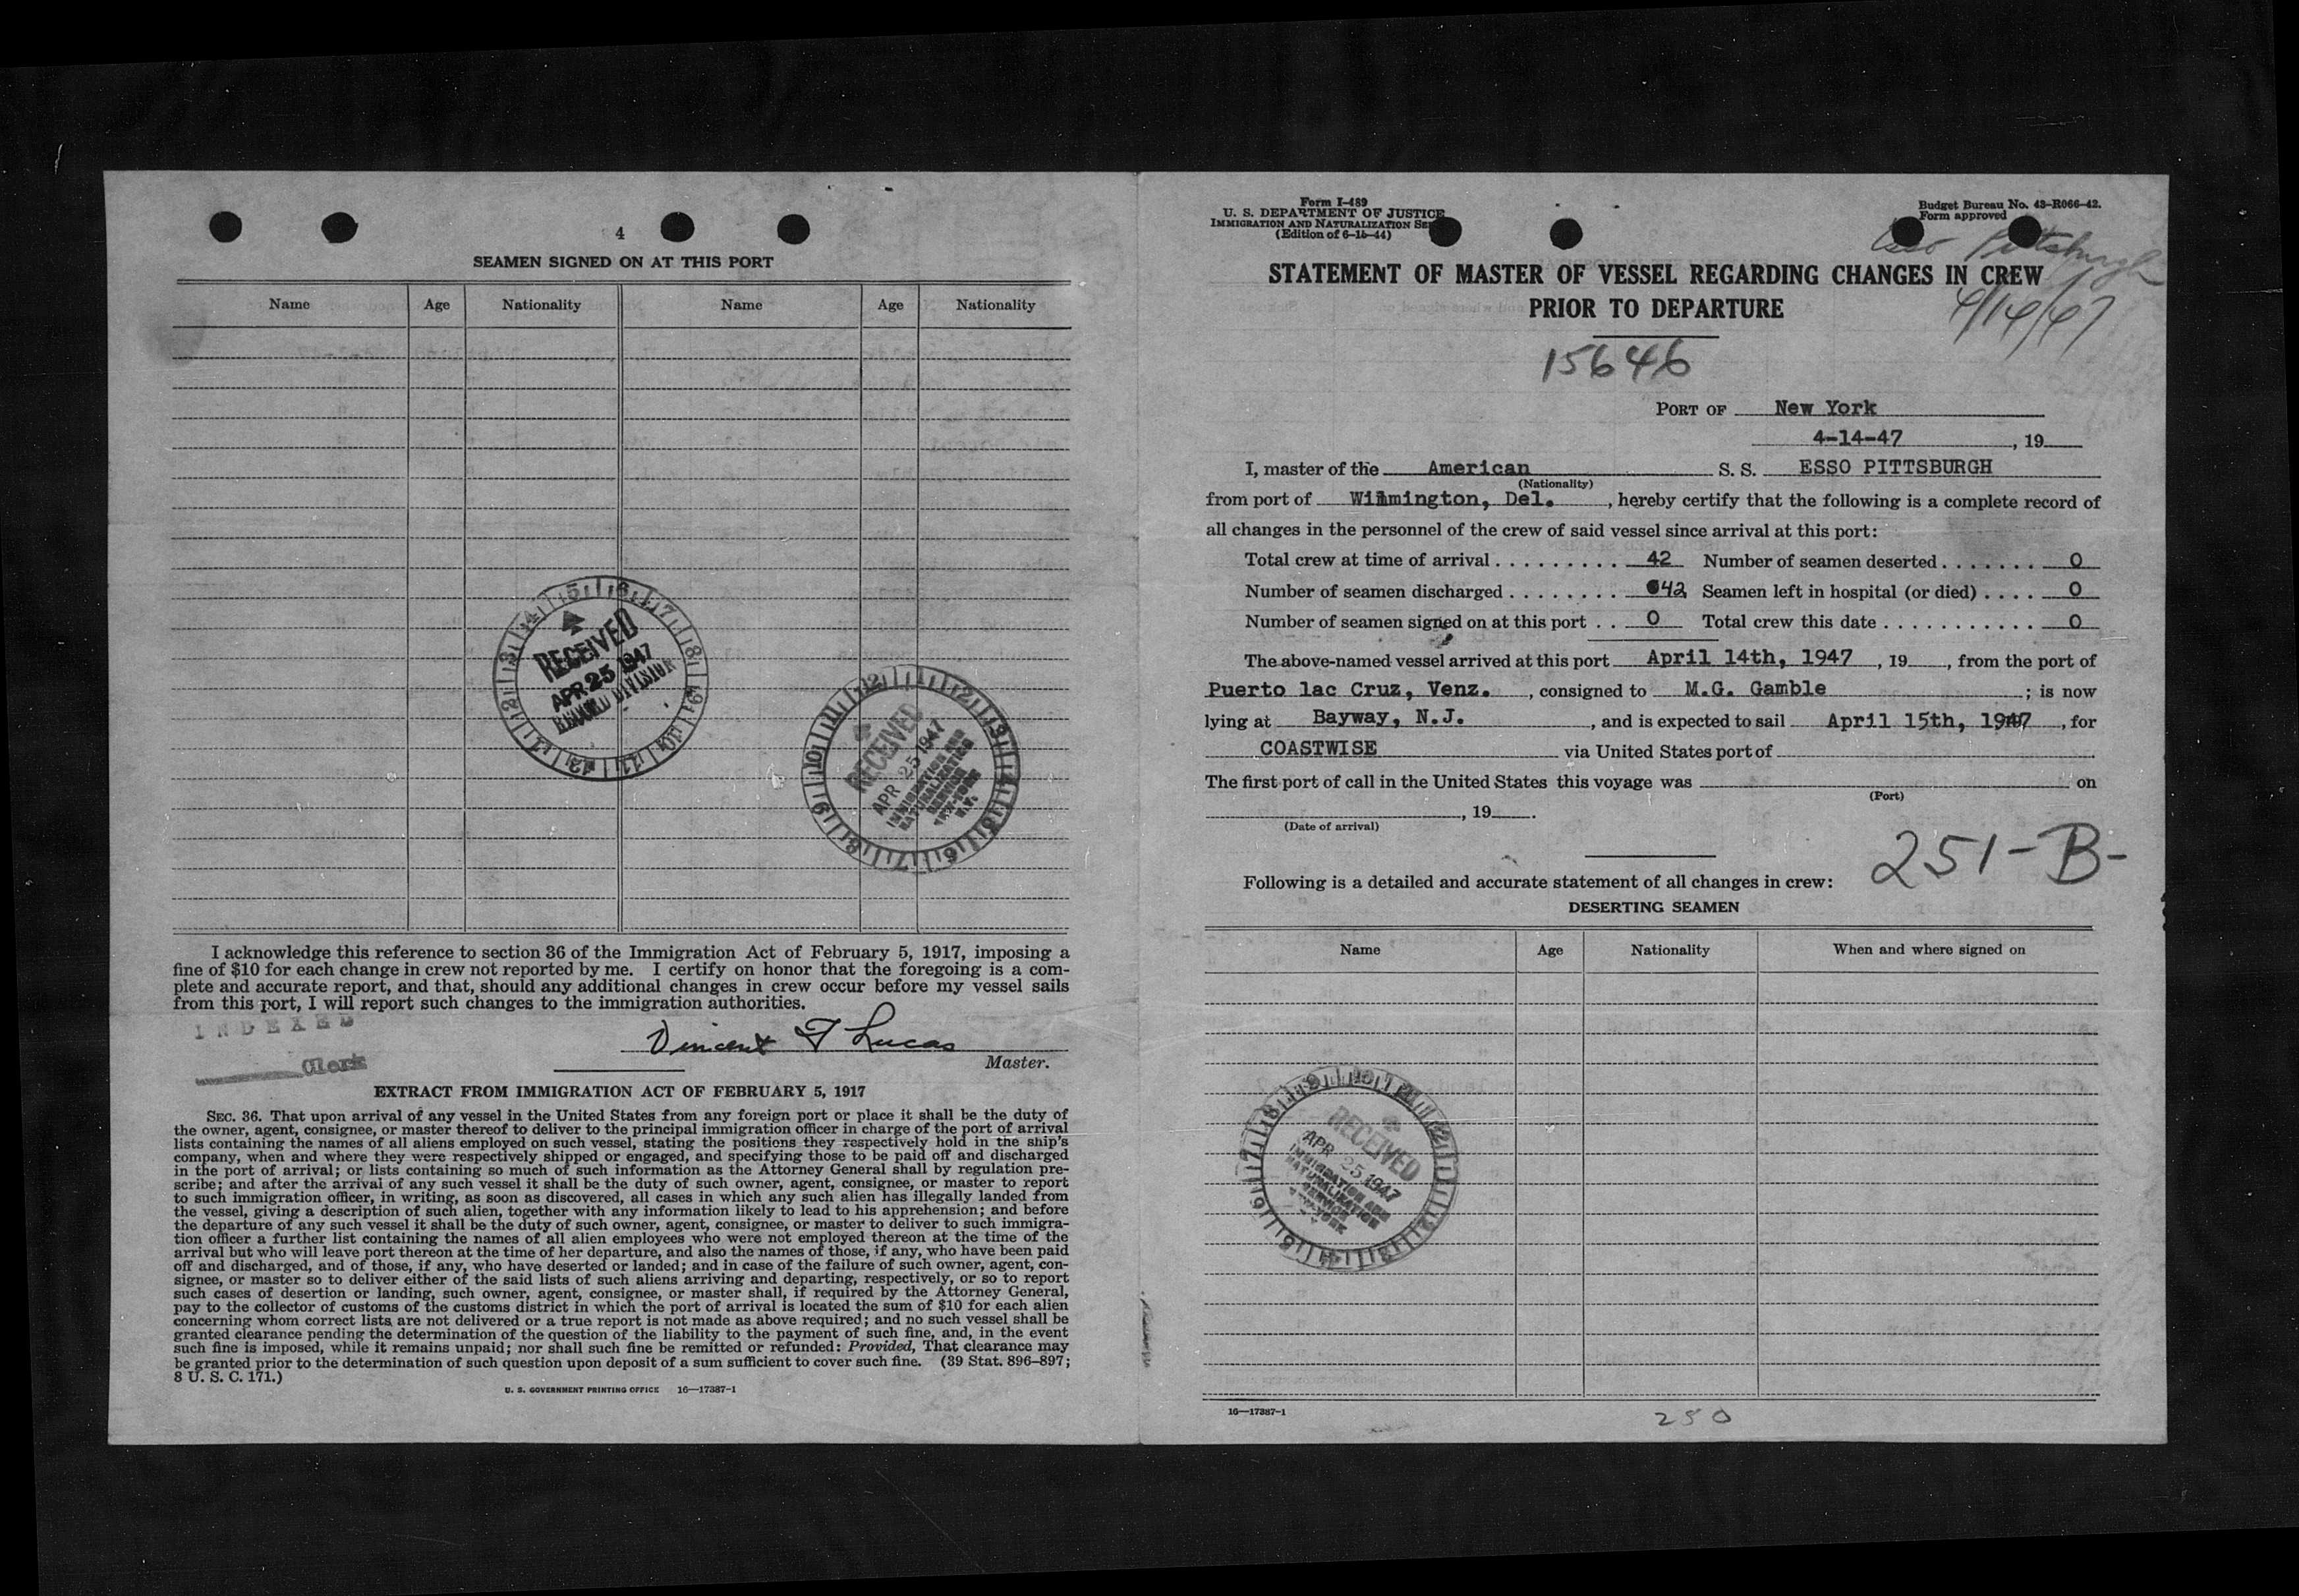 4
SEAMEN SIGNED ON AT THIS PORT
Name Age Nationality Name Age Nationality
RECEIVED
APR 25 1947
RECORD DIVISION
RECEIVED
APR 25 1947
IMMIGRATION AND
NATURALIZATION
SERVICE
NEW YORK
N.Y.
I acknowledge this reference to section 36 of the Immigration Act of February 5, 1917, imposing a
fine of $10 for each change in crew not reported by me. I certify on honor that the foregoing is a com-
plete and accurate report, and that, should any additional changes in crew occur before my vessel sails
from this port, I will report such changes to the immigration authorities.
INDEXED
Clerk
Vincent F Lucas
Master.
EXTRACT FROM IMMIGRATION ACT OF FEBRUARY 5, 1917
SEC. 36. That upon arrival of any vessel in the United States from any foreign port or place it shall be the duty of
the owner, agent, consignee, or master thereof to deliver to the principal immigration officer in charge of the port of arrival
lists containing the names of all aliens employed on such vessel, stating the positions they respectively hold in the ship's
company, when and where they were respectively shipped or engaged, and specifying those to be paid off and discharged
in the port of arrival; or lists containing so much of such information as the Attorney General shall by regulation pre-
scribe; and after the arrival of any such vessel it shall be the duty of such owner, agent, consignee, or master to report
to such immigration officer, in writing, as soon as discovered, all cases in which any such alien has illegally landed from
the vessel, giving a description of such alien, together with any information likely to lead to his apprehension; and before
the departure of any such vessel it shall be the duty of such owner, agent, consignee, or master to deliver to such immigra-
tion officer a further list containing the names of all alien employees who were not employed thereon at the time of the
arrival but who will leave port thereon at the time of her departure, and also the names of those, if any, who have been paid
off and discharged, and of those, if any, who have deserted or landed; and in case of the failure of such owner, agent, con-
signee, or master so to deliver either of the said lists of such aliens arriving and departing, respectively, or so to report
such cases of desertion or landing, such owner, agent, consignee, or master shall, if required by the Attorney General,
pay to the collector of customs of the customs district in which the port of arrival is located the sum of $10 for each alien
concerning whom correct lists are not delivered or a true report is not made as above required; and no such vessel shall be
granted clearance pending the determination of the question of the liability to the payment of such fine, and, in the event
such fine is imposed, while it remains unpaid; nor shall such fine be remitted or refunded: Provided, That clearance may
be granted prior to the determination of such question upon deposit of a sum sufficient to cover such fine. (39 Stat. 896–897;
8 U. S. C. 171.)
U. S. GOVERNMENT PRINTING OFFICE 16—17387-1
Form I-489
U. S. DEPARTMENT OF JUSTICE
IMMIGRATION AND NATURALIZATION SE
(Edition of 6-15-44)
Budget Bureau No. 43-R066-42.
Form approved
Esso Pittsburgh
4/14/47
STATEMENT OF MASTER OF VESSEL REGARDING CHANGES IN CREW
PRIOR TO DEPARTURE
15646
PORT OF New York
4-14-47, 19
I, master of the American S. S. ESSO PITTSBURGH
(Nationality)
from port of Wilmington, Del., hereby certify that the following is a complete record of
all changes in the personnel of the crew of said vessel since arrival at this port:
Total crew at time of arrival . . . . . . . . . 42 Number of seamen deserted . . . . . . . 0
Number of seamen discharged . . . . . . . . 42 Seamen left in hospital (or died) . . . . 0
Number of seamen signed on at this port . . 0 Total crew this date . . . . . . . . . . . 0
The above-named vessel arrived at this port April 14th, 1947, 19, from the port of
Puerto lac Cruz, Venz., consigned to M.G. Gamble; is now
lying at Bayway, N.J., and is expected to sail April 15th, 1947, for
COASTWISE via United States port of
The first port of call in the United States this voyage was on
(Port)
, 19.
(Date of arrival)
251-B-
Following is a detailed and accurate statement of all changes in crew:
DESERTING SEAMEN
Name Age Nationality When and where signed on
RECEIVED
APR 25 1947
IMMIGRATION AND
NATURALIZATION
SERVICE
NEW YORK
16—17387-1
250